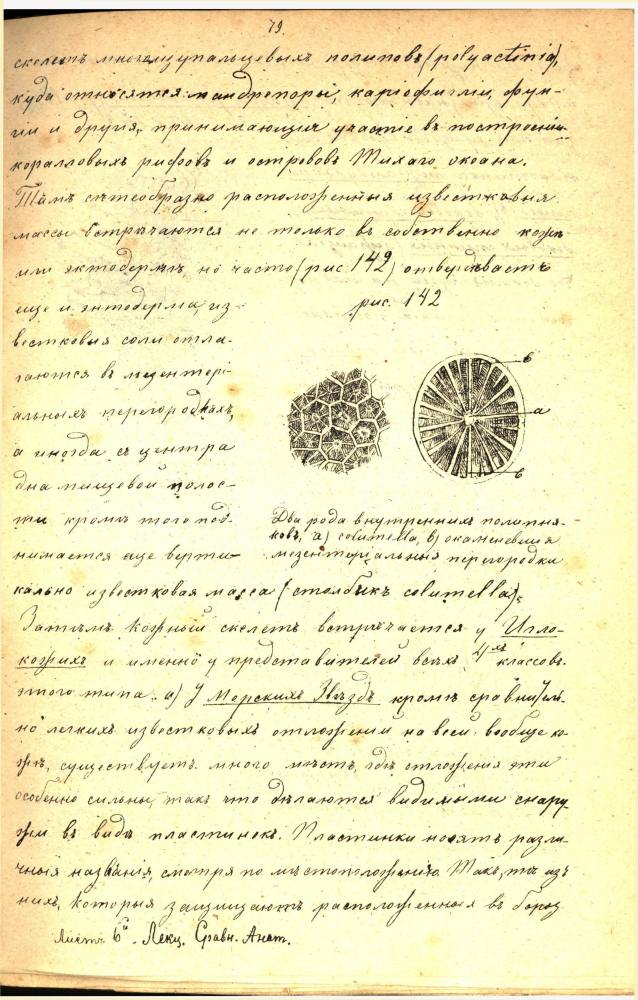 79.
скелетъ многощупальцевыхъ полиповъ (polyactinia),
куда относятся мандрепоры, каріофиліи, фун-
гіи и другія, принимающія участіе въ построеніи
коралловыхъ рифовъ и острововъ Тихаго океана.
Тамъ сѣтеобразно расположенныя известковыя
массы встрѣчаются не только въ собственно кожѣ
или эктодермѣ, но часто (рис 142) отвердѣваетъ
еще и энтодерма, из-
рис. 142
вестковыя соли отла-
гаются въ мезентері-
альныхъ перегородкахъ,
а иногда съ центра
дна пищевой полос-
ти кромѣ того под-
нимается еще верти-
в
а
в
Два рода внутреннихъ полипня-
ковъ, а) columella, в) окаменевшія
мезентеріальныя перегородки
кально известковая масса (столбикъ columella).
Затѣмъ кожный скелетъ встрѣчается у Игло-
кожихъ и именно у представителей всѣхъ 4хъ классовъ
этого типа. а) У Морскихъ Звѣздъ кромѣ сравнитель-
но легкихъ известковыхъ отложеній на всей вообще ко-
жѣ, существуетъ много мѣстъ, гдѣ отложенія эти
особенно сильны, такъ что дѣлаются видимыми снару-
жи въ видѣ пластинокъ. Пластинки носятъ разли-
чныя названія, смотря по мѣстоположенію. Такъ, тѣ изъ
нихъ, которыя защищаютъ расположенныя въ борозд
Листъ 6й. Лекц. Сравн. Анат.